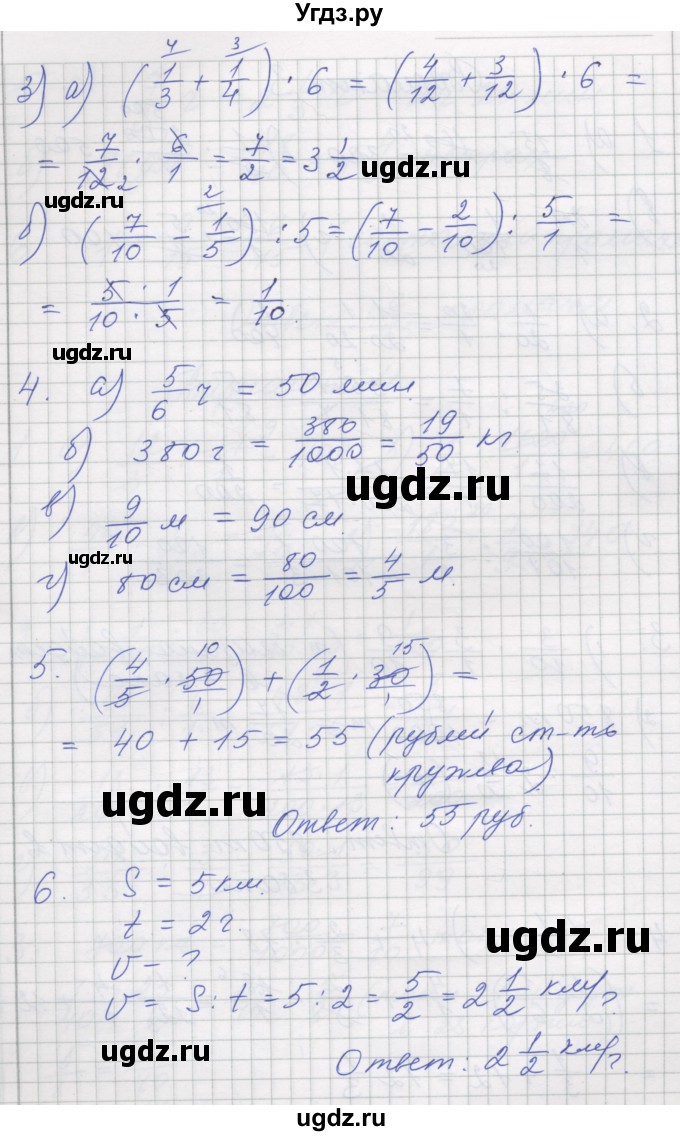 Угдз.ру
3) а) (1/3 + 1/4) · 6 = (4/12 + 3/12) · 6 =
= 7/12 · 6/1 = 7/2 = 3 1/2
ugdz.ru
ugdz.ru
б) (7/10 - 1/5) : 5 = (7/10 - 2/10) : 5/1 =
= 5 · 1/10 · 5 = 1/10.
ugdz.ru
4. а) 5/6 ч = 50 мин.
б) 380 г = 380/1000 = 19/50 кг.
ugdz.ru
в) 9/10 м = 90 см.
ugdz.ru
г) 80 см = 80/100 = 4/5 м.
5. (4/5 · 50/1) + (1/2 · 30/1) =
= 40 + 15 = 55 (рублей ст-ть
кружева)
ugdz.ru
Ответ: 55 руб.
6. S = 5 км.
t = 2 ч.
ugdz.ru
v - ?
v = S : t = 5 : 2 = 5/2 = 2 1/2 км/ч.
ugdz.ru
Ответ: 2 1/2 км/ч.
ugdz.ru